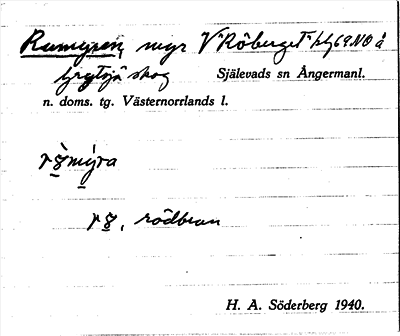 Rumyren, myr V "Röberget" på 69 NO å
skog Själevads sn Ångermanl.
n. doms. tg. Västernorrlands l.
mýra
, rödbrun
H. A. Söderberg 1940.